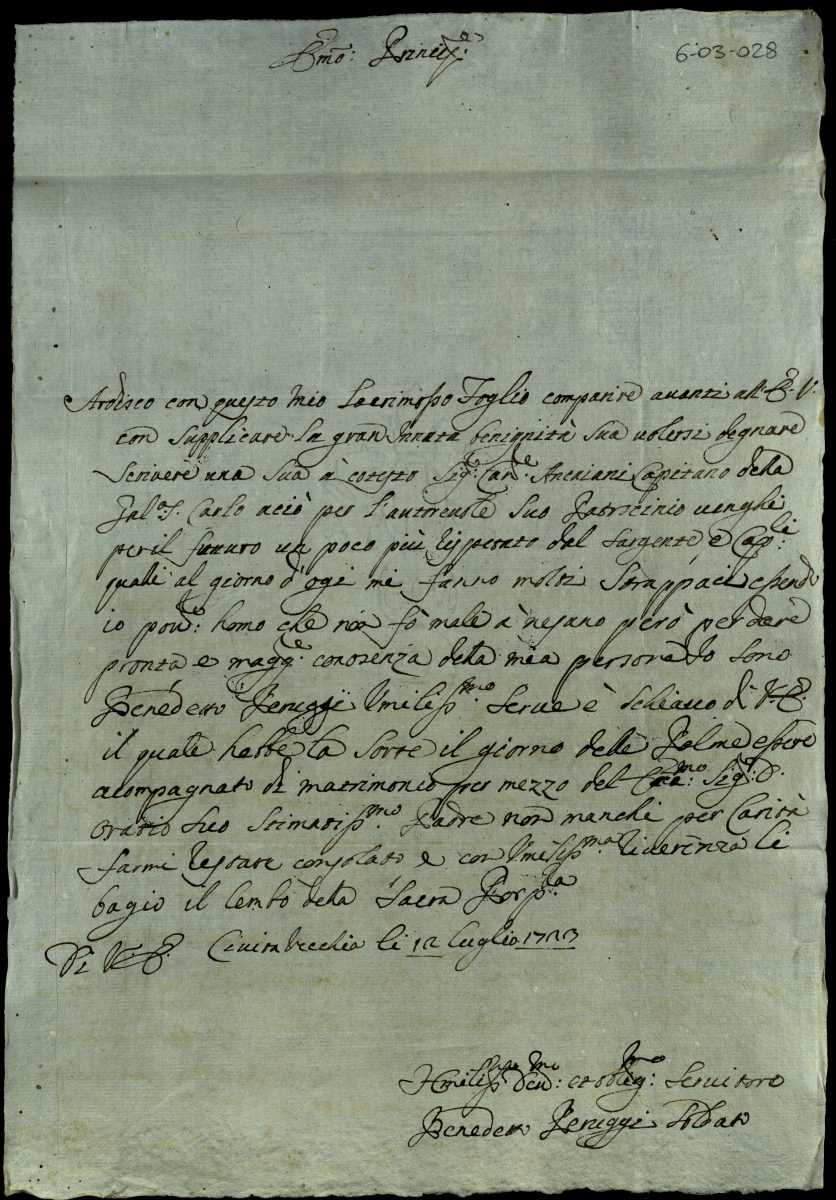 Em̃o: Princip̃e:
6-03-028
Ardisco con questo mio Lacrimosso Foglio comparire avanti all'E: V:
con Supplicare la gran Innata benignità Sua volersi degnare
Scrivere una Sua à cotesto Sig:e Cav:e Ancaiani Capitano della
Gal:a S. Carlo aciò per l'autorevole Suo Patrocinio venghi
per il futuro un poco più rispetato dal Sargente e Cap:li
quali al giorno d'ogi mi fanno molti Strappaci essendo
io pov:o homo che nõ fò male à nesuno però per dare
pronta e magg:e conosenza della mia persona Io Sono
Benedetto Peruggi Umiliss:mo Servo è Schiavo di V: E:
il quale hebbe la Sorte il giorno delle Palme essere
acompagnato di matrimonio per mezzo del Sig:r D.
Oratio Suo Stimatiss:mo Padre non manchi per Carità
farmi restare consolato e con Umiliss:ma riverenza li
bagio il lembo della Sacra Porp:la
Di V: E: Civita Vecchia li 12 Luglio 1723
Humiliss:mo Dev:mo et oblig:mo Servitore
Benedetto Peruggi Soldato